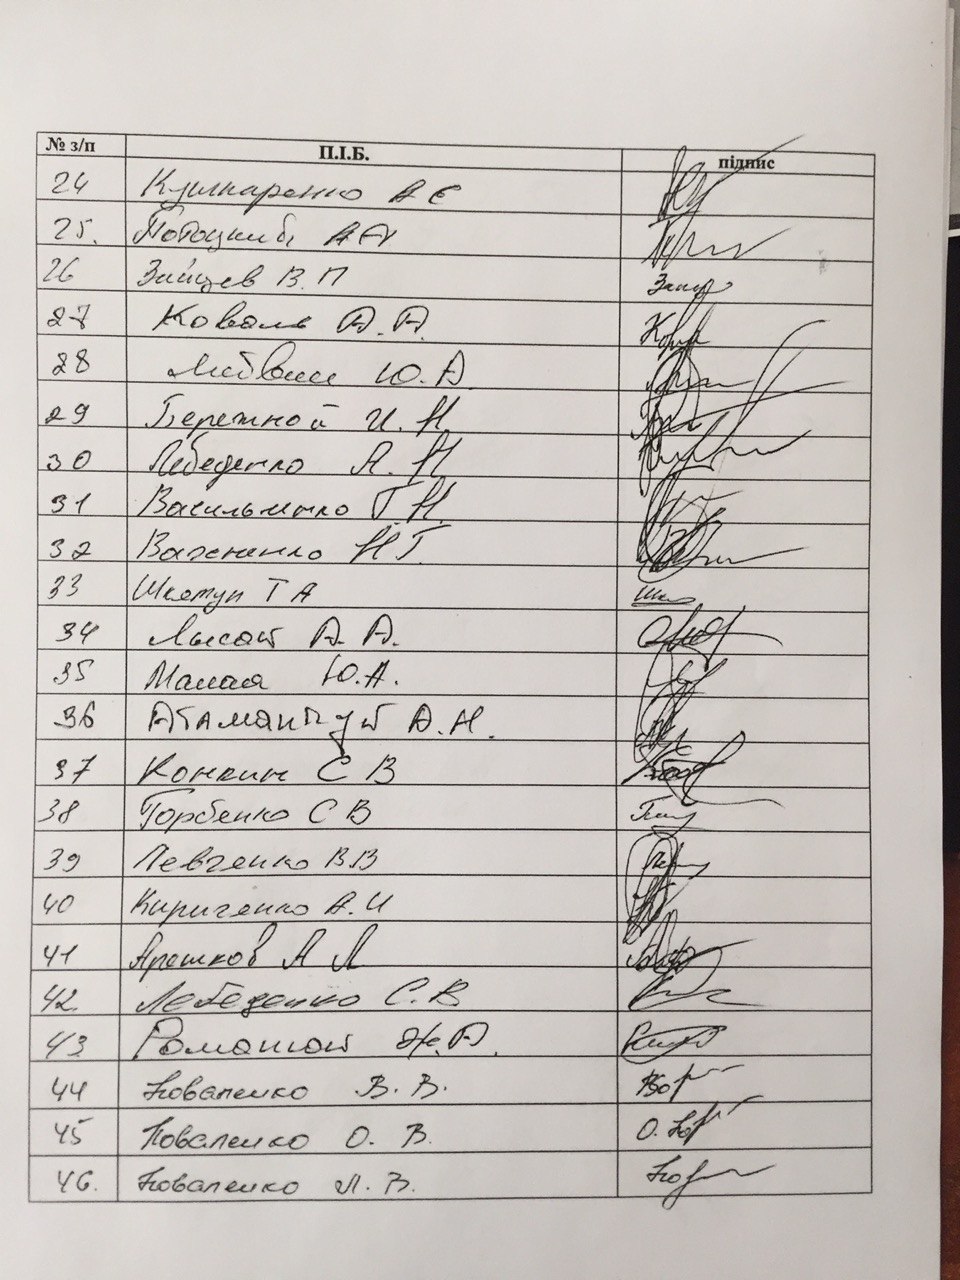 № з/п П.І.Б. підпис
24 Кушнаренко А Є
25. Потоцкий А А
26 Зайцев В. П
27 Коваль А. А
28 Литвин Ю. А
29 Бережной И. Н
30 Лебеденко А. Н
31 Васильченко Г. Н
32 Важненко Н Г.
33 Шкотун Т А
34 Лысай А. А.
35 Малая Ю. А.
36 Атаманчук А. Н.
37 Конкин С В
38 Горбенко С В
39 Левченко В. В
40 Кириченко А. И
41 Арешков А Л
42 Лебеденко С. В
43 Романюк Ж. А.
44 Коваленко В. В.
45 Коваленко О. В.
46. Коваленко Л. В.